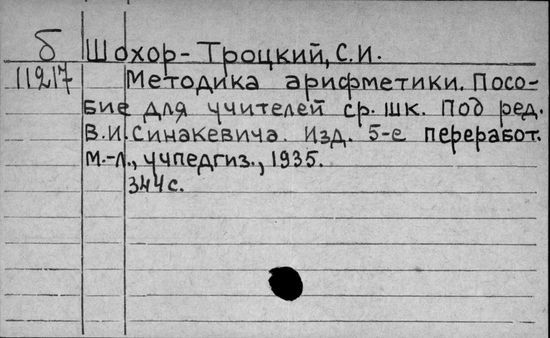 б Шохор-Троцкий, С.И.
11217 Методика арифметики. Посо-
бие для учителей ср. шк. Под ред.
В.И. Синакевича. Изд. 5-е переработ.
М.-Л., Учпедгиз., 1935.
344 с.